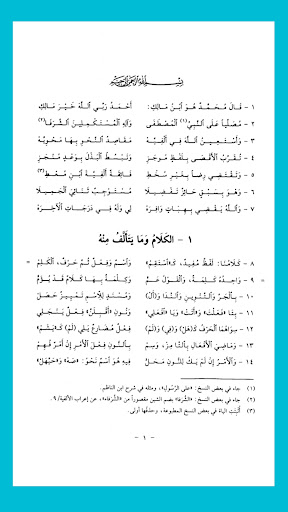 بسم الله الرحمن الرحيم
١ - قَالَ مُحَمَّدٌ هُوَ ابْنُ مَالِكِ: أَحْمَدُ رَبِّي اللهَ خَيْرَ مَالِكِ
٢ - مُصَلِّياً عَلَى النَّبِيِّ(١) الْمُصْطَفَى وَآلِهِ الْمُسْتَكْمِلِينَ الشَّرَفَا(٢)
٣ - وَأَسْتَعِينُ اللهَ فِي أَلْفِيَّهْ مَقَاصِدُ النَّحْوِ بِهَا مَحْوِيَّهْ
٤ - تُقَرِّبُ الْأَقْصَى بِلَفْظٍ مُوجَزِ وَتَبْسُطُ الْبَذْلَ بِوَعْدٍ مُنْجَزِ
٥ - وَتَقْتَضِي رِضاً بِغَيْرِ سُخْطِ فَائِقَةً أَلْفِيَّةَ ابْنِ مُعْطِ(٣)
٦ - وَهْوَ بِسَبْقٍ حَائِزٌ تَفْضِيلَا مُسْتَوْجِبٌ ثَنَائِيَ الْجَمِيلَا
٧ - وَاللهُ يَقْضِي بِهِبَاتٍ وَافِرَهْ لِي وَلَهُ فِي دَرَجَاتِ الْآخِرَهْ
١ - الْكَلَامُ وَمَا يَتَأَلَّفُ مِنْهُ
٨ - كَلَامُنَا: لَفْظٌ مُفِيدٌ، كَـ«اسْتَقِمْ» وَاسْمٌ وَفِعْلٌ ثُمَّ حَرْفٌ، الْكَلِمْ
٩ - وَاحِدُهُ كَلِمَةٌ، وَالْقَوْلُ عَمّْ وَكِلْمَةٌ بِهَا كَلَامٌ قَدْ يُؤَمّْ
١٠ - بِالْجَرِّ وَالتَّنْوِينِ وَالنِّدَا وَ(أَلْ) وَمُسْنَدٍ لِلِاسْمِ تَمْيِيزٌ حَصَلْ
١١ - بِتَا «فَعَلْتَ» وَ«أَتَتْ» وَيَا «افْعَلِي» وَنُونِ «أَقْبِلَنَّ» فِعْلٌ يَنْجَلِي
١٢ - سِوَاهُمَا الْحَرْفُ كَـ(هَلْ) وَ(فِي) وَ(لَمْ) فِعْلٌ مُضَارِعٌ يَلِي (لَمْ) كَـ«يَشَمّْ»
١٣ - وَمَاضِيَ الْأَفْعَالِ بِالتَّا مِزْ، وَسِمْ بِالنُّونِ فِعْلَ الْأَمْرِ إِنْ أَمْرٌ فُهِمْ
١٤ - وَالْأَمْرُ إِنْ لَمْ يَكُ لِلنُّونِ مَحَلّْ فِيهِ هُوَ اسْمٌ نَحْوُ: «صَهْ» وَ«حَيَّهَلْ»
(١) جاء في بعض النسخ: «على الرَّسُولِ»، ومثله في شرح ابن الناظم.
(٢) جاء في بعض النسخ: «الشُّرَفَا» بضم الشين مقصوراً من «الشُّرَفَاءِ»، عن إعراب الألفية/٩.
(٣) أُثْبِتَت الياء في بعض النسخ المطبوعة، وحذفُها أولى.
- ١ -